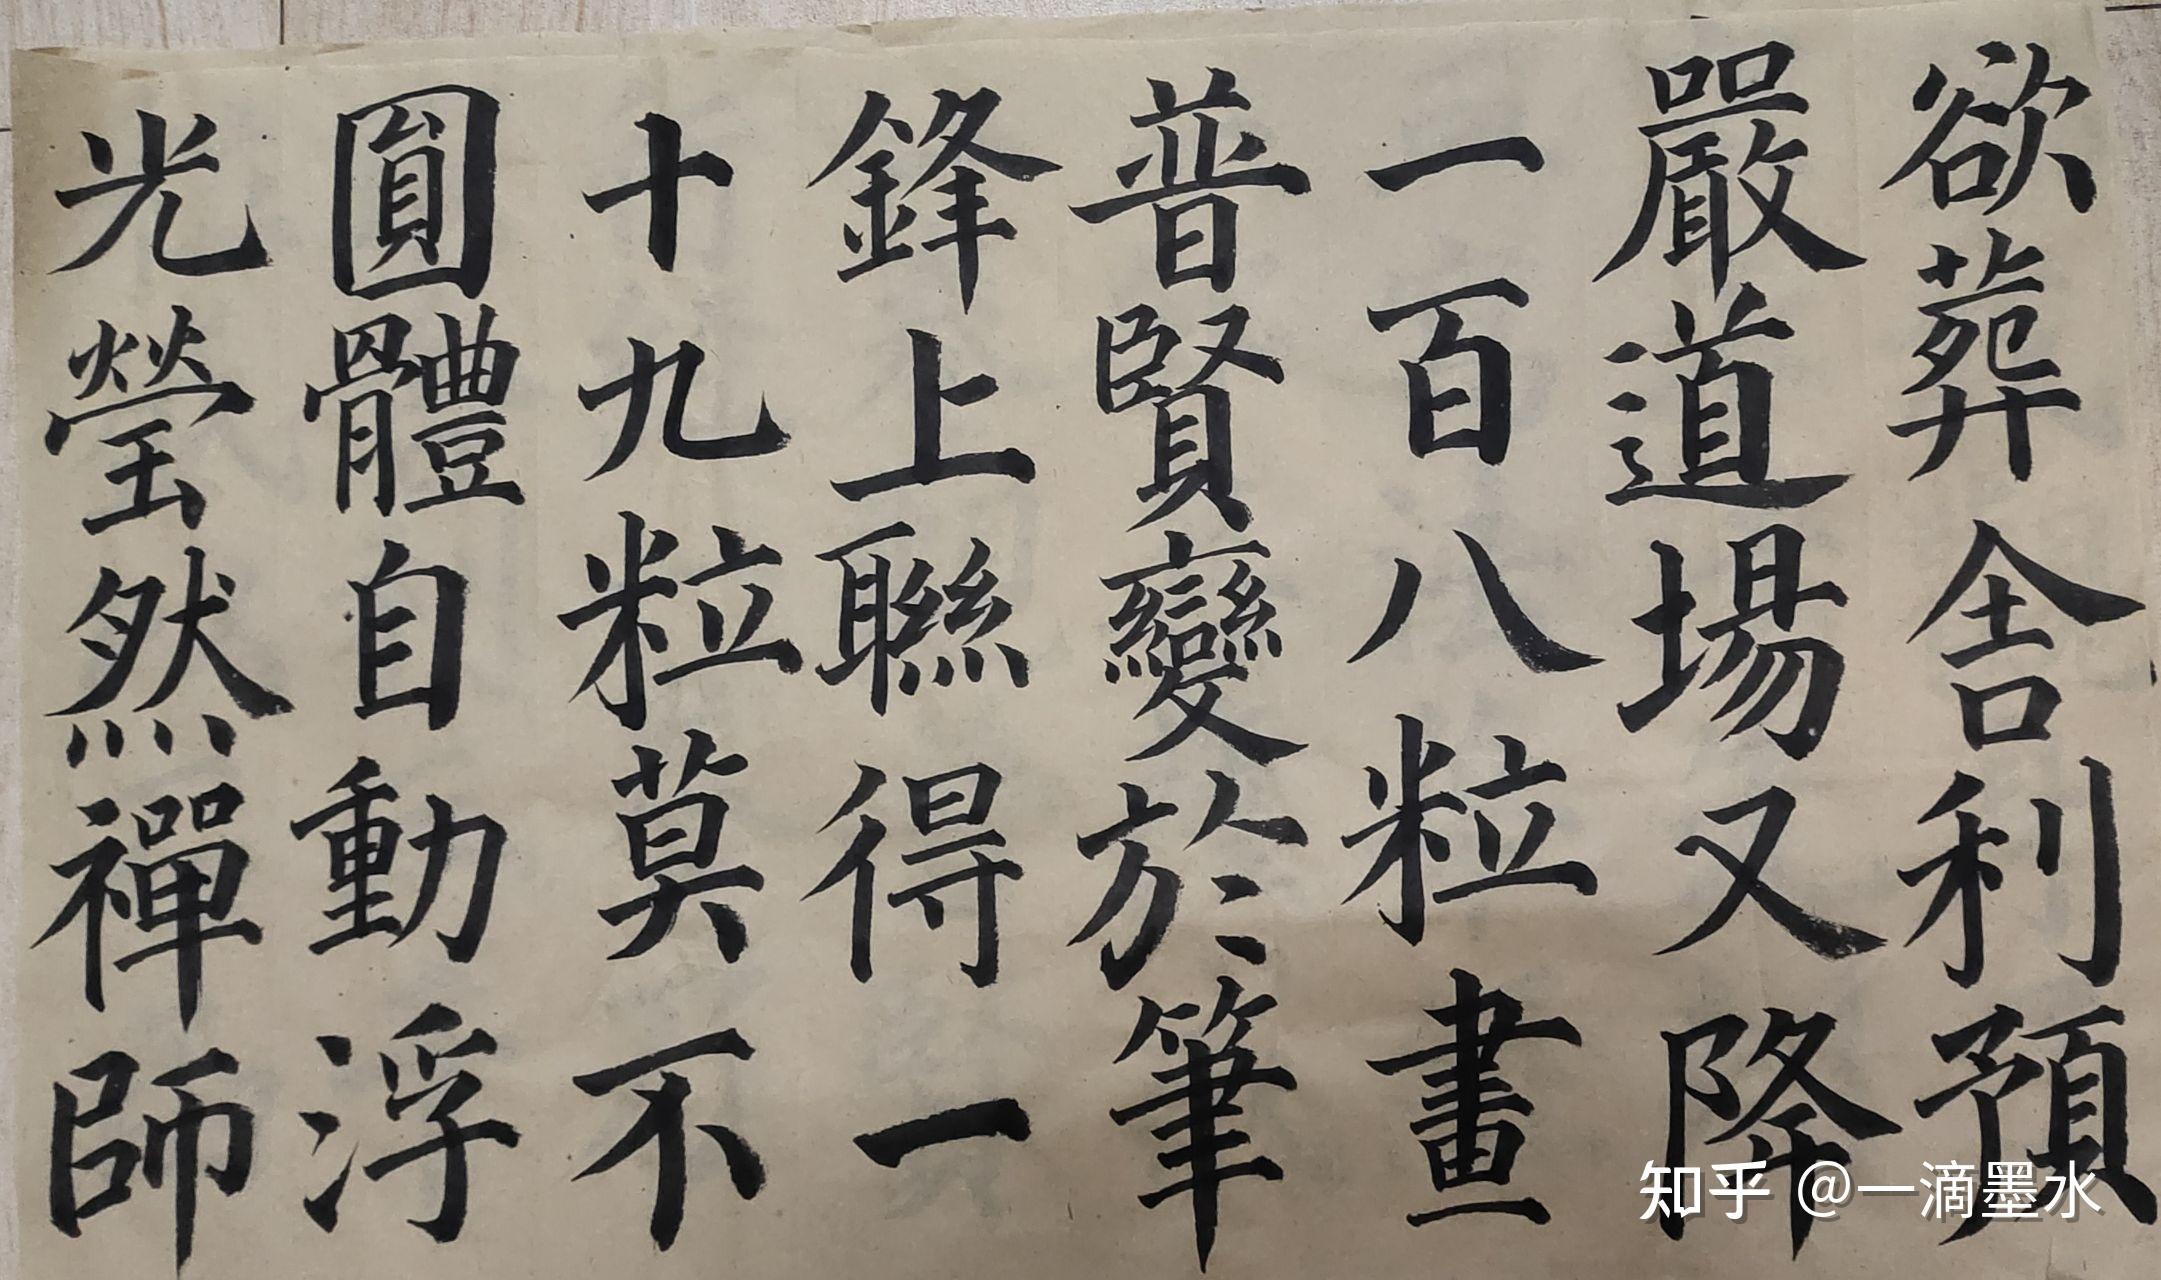 欲葬舍利預
嚴道場又降
一百八粒畫
普賢變於筆
鋒上聯得一
十九粒莫不
圓體自動浮
光瑩然禪師
知乎 @一滴墨水